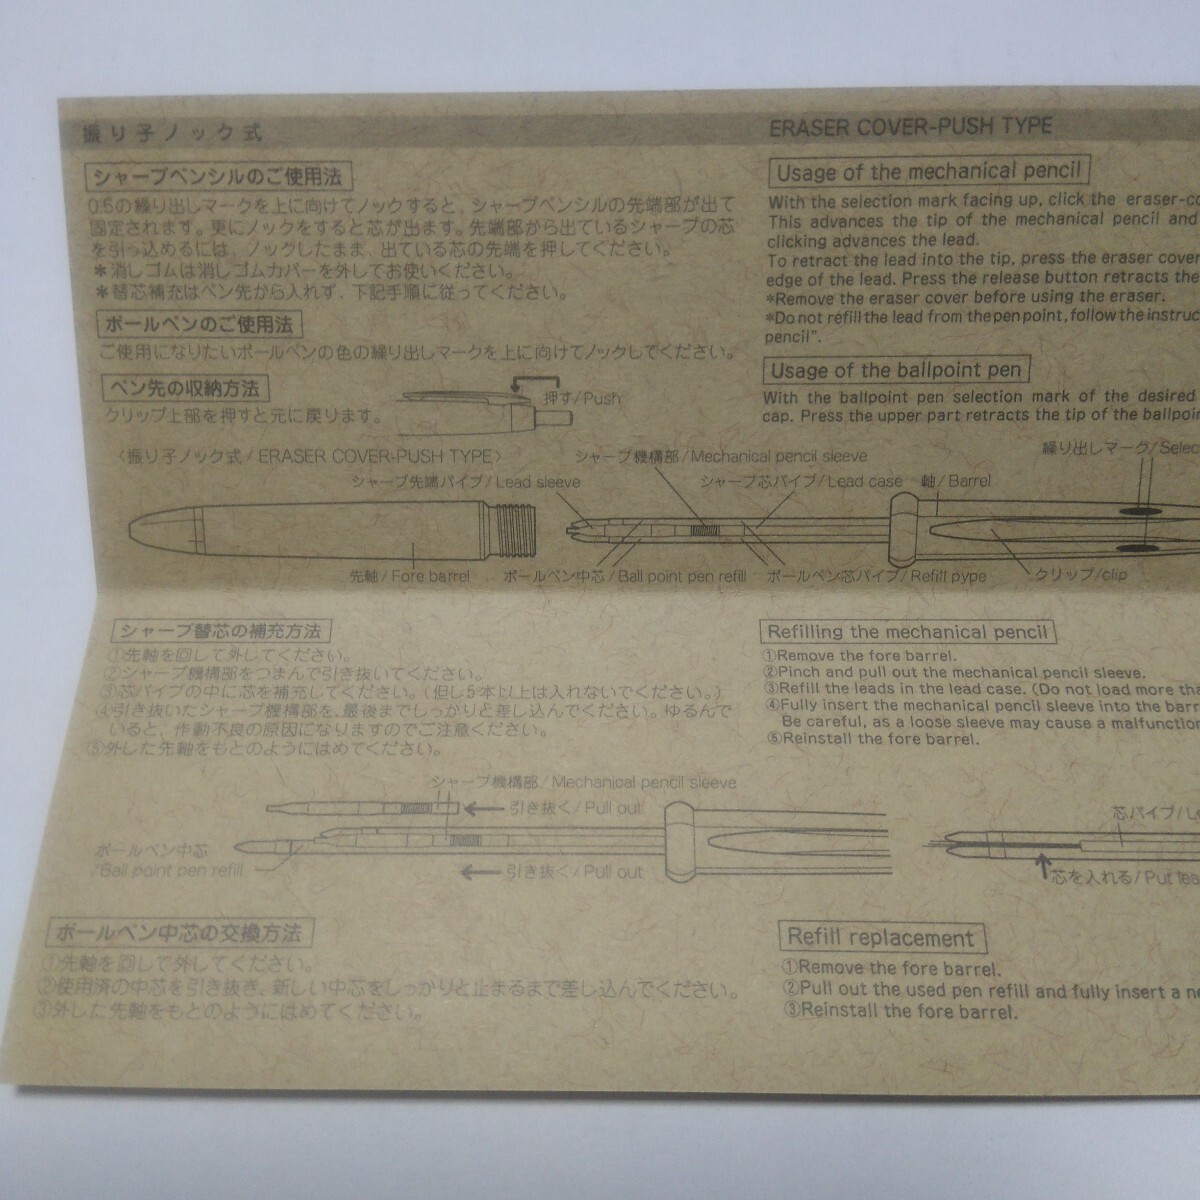 振り子ノック式
シャープペンシルのご使用法
0.5の繰り出しマークを上に向けてノックすると、シャープペンシルの先端部が出て
固定されます。更にノックをすると芯が出ます。先端部から出ているシャープの芯
を引っ込めるには、ノックしたまま、出ている芯の先端を押してください。
＊消しゴムは消しゴムカバーを外してお使いください。
＊替芯補充はペン先から入れず、下記手順に従ってください。
ボールペンのご使用法
ご使用になりたいボールペンの色の繰り出しマークを上に向けてノックしてください。
ペン先の収納方法
クリップ上部を押すと元に戻ります。
押す/Push
ERASER COVER-PUSH TYPE
Usage of the mechanical pencil
With the selection mark facing up, click the eraser-co
This advances the tip of the mechanical pencil and
clicking advances the lead.
To retract the lead into the tip, press the eraser cover
edge of the lead. Press the release button retracts the
*Remove the eraser cover before using the eraser.
*Do not refill the lead from the pen point, follow the instruc
pencil".
Usage of the ballpoint pen
With the ballpoint pen selection mark of the desired
cap. Press the upper part retracts the tip of the ballpoi
〈振り子ノック式/ERASER COVER-PUSH TYPE〉
シャープ機構部/Mechanical pencil sleeve
繰り出しマーク/Selec
シャープ先端パイプ/Lead sleeve
シャープ芯パイプ/Lead case
軸/Barrel
先軸/Fore barrel
ボールペン中芯/Ball point pen refill
ボールペン芯パイプ/Refill pype
クリップ/clip
シャープ替芯の補充方法
①先軸を回して外してください。
②シャープ機構部をつまんで引き抜いてください。
③芯パイプの中に芯を補充してください。(但し5本以上は入れないでください。)
④引き抜いたシャープ機構部を、最後までしっかりと差し込んでください。ゆるんで
いると、作動不良の原因になりますのでご注意ください。
⑤外した先軸をもとのようにはめてください。
Refilling the mechanical pencil
①Remove the fore barrel.
②Pinch and pull out the mechanical pencil sleeve.
③Refill the leads in the lead case. (Do not load more tha
④Fully insert the mechanical pencil sleeve into the barr
Be careful, as a loose sleeve may cause a malfunctio
⑤Reinstall the fore barrel.
シャープ機構部/Mechanical pencil sleeve
引き抜く/Pull out
ボールペン中芯
/Ball point pen refill
引き抜く/Pull out
芯パイプ/Le
芯を入れる/Put lea
ボールペン中芯の交換方法
①先軸を回して外してください。
②使用済の中芯を引き抜き、新しい中芯をしっかりと止まるまで差し込んでください。
③外した先軸をもとのようにはめてください。
Refill replacement
①Remove the fore barrel.
②Pull out the used pen refill and fully insert a ne
③Reinstall the fore barrel.